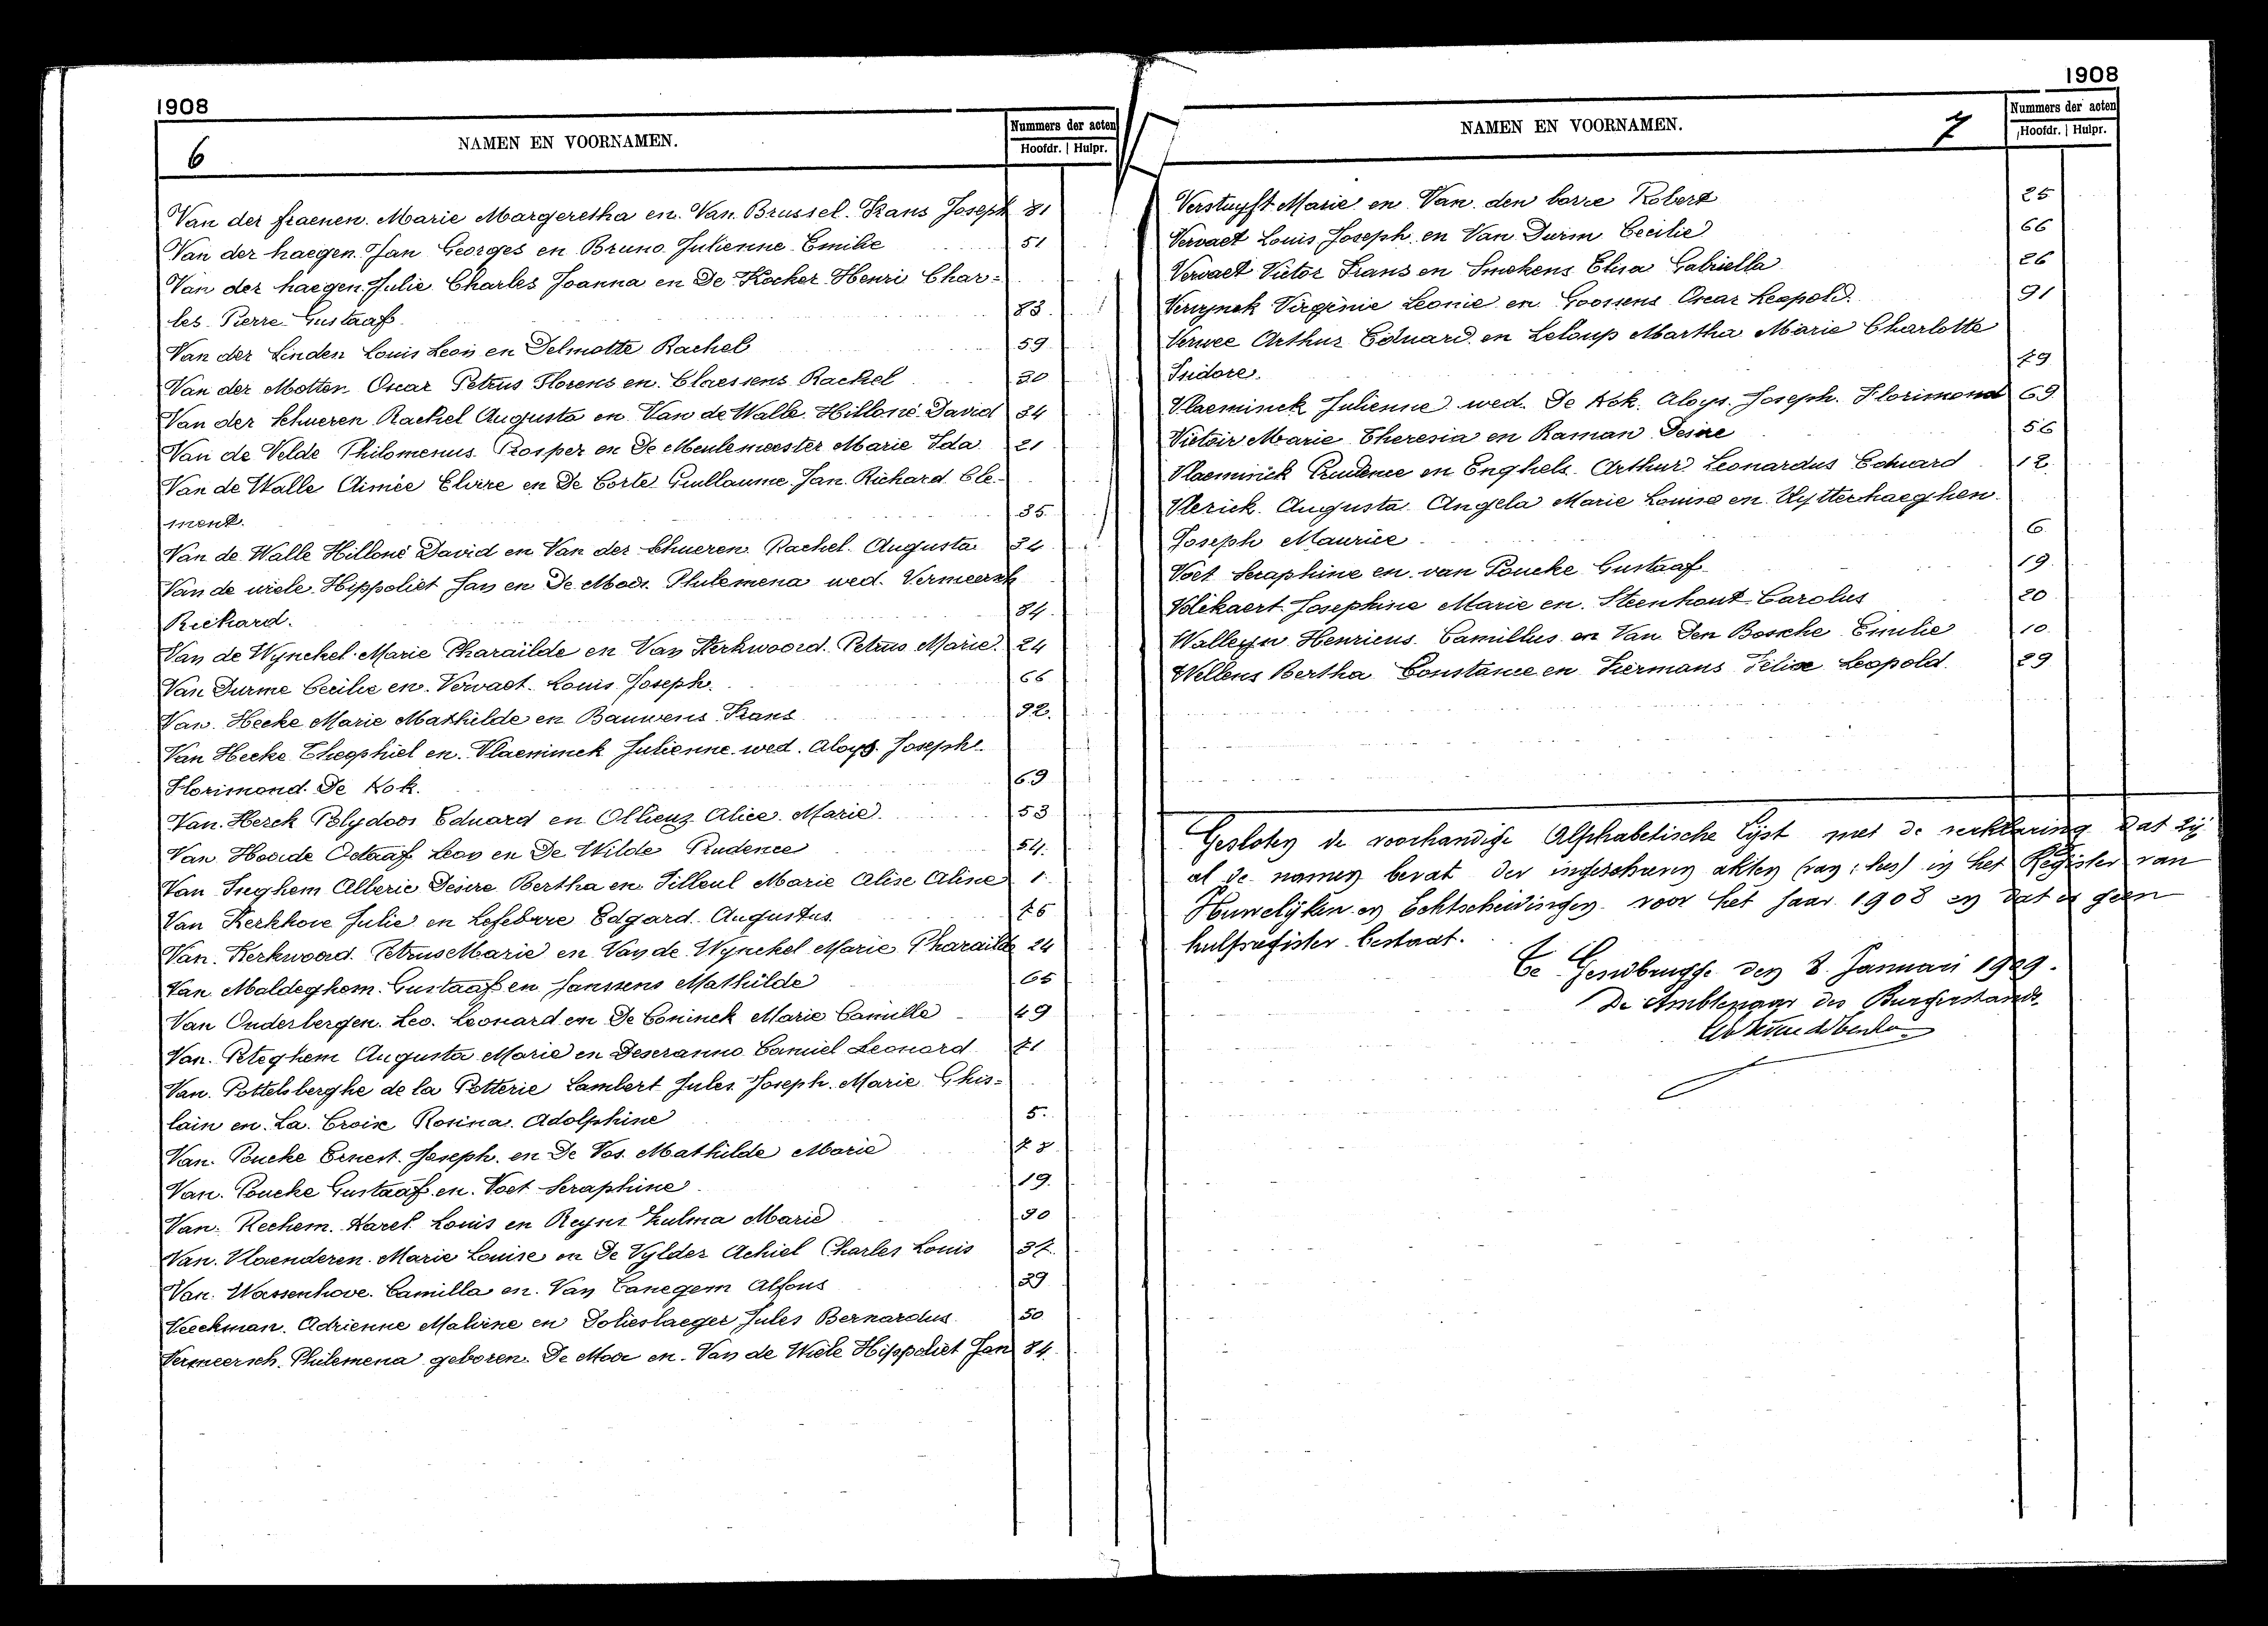 1908
6
NAMEN EN VOORNAMEN.
Nummers der acten
Hoofdr. | Hulpr.
Van der fraenen. Marie Margeretha en. Van. Brussel. Frans Joseph 81
Van der haegen. Jan Georges en Bruno. Julienne Emilie 51
Van der haegen. Julie Charles Joanna en De Kocker Henri Char=
les Pierre Gustaaf. 83
Van der Linden Louis Leon en Delmotte Rachel 59
Van der Motten Oscar Petrus Florens en. Claessens Rachel 30
Van der Schueren Rachel Augusta en Van de Walle Hilloné David 34
Van de Velde Philomenus. Prosper en De Meulemeester Marie Ida 21
Van de Walle Aimée Elvire en De Corte Guillaume Jan. Richard Cle-
ment. 35
Van de Walle Hilloné David en Van der Schueren Rachel Augusta 34
Van de wiele Hippoliet Jan en De Moor Philemena wed. Vermeersch
Richard. 84
Van de Wynckel Marie Pharaïlde en Van Kerkwoord. Petrus Marie. 24
Van Durme Cecilie en. Vervaet Louis Joseph. 66
Van. Hecke Marie Mathilde en Bauwens Frans 92
Van Hecke Theophiel en. Vlaeminck Julienne wed. Aloys. Joseph
Florimond De Kok. 69
Van. Herck Polydoor Eduard en Ollieuz Alice Marie 53
Van Hoorde Octaaf Leon en De Wilde Prudence 54
Van Inghem Alberic Desire Bertha en Tilleul Marie Alise Aline 1
Van Kerkhove Julie en Lefebvre Edgard Augustus 76
Van. Kerkwoord. Petrus Marie en Van de Wynckel Marie Pharaïlde 24
Van Maldeghem. Gustaaf en Janssens Mathilde 65
Van Onderbergen. Leo. Leonard en De Coninck Marie Camille 49
Van. Peteghem Augusta Marie en Deseranno Camiel Leonard 71
Van. Pottelsberghe de la Potterie Lambert Jules Joseph. Marie Ghis=
lain en. La. Croix Rosina. Adolphine 5
Van. Poucke Ernest. Joseph. en De Vos. Mathilde Marie 78
Van. Poucke Gustaaf. en. Voet Seraphine 19
Van. Rechem. Karel Louis en Reyns Zulma Marie 90
Van. Vlaenderen. Marie Louise en De Vylder Achiel Charles Louis 37
Van. Wassenhove. Camilla en. Van Canegem Alfons 39
Veeckman. Adrienne Malvine en Dolieslaeger Jules Bernardus 50
Vermeersch. Philemena geboren. De Moor en. Van de Wiele Hippoliet Jan 84
1908
NAMEN EN VOORNAMEN.
7
Nummers der acten
Hoofdr. | Hulpr.
Verstuyft Marie en Van den borre Robert 25
Vervaet Louis Joseph. en Van Durm Cecilie 66
Vervaet Victor Frans en Smekens Elisa Gabriella 26
Verzynck Virginie Leonie en Goossens Oscar Leopold. 91
Verwee Arthur Eduard en Leloup Martha Marie Charlotte
Isidore. 79
Vlaeminck Julienne wed. De Kok. Aloys. Joseph. Florimond 69
Victoir Marie Theresia en Raman Desire 56
Vlaeminck Prudence en Enghels. Arthur Leonardus Eduard 12
Vlerick. Augusta Angela Marie Louise en Uytterhaeghen
Joseph Maurice 6
Voet Seraphine en van Poucke Gustaaf 19
Volikaert Josephine Marie en. Steenhout Carolus 20
Walleyn Henricus Camillus en Van Den Bossche Emilie 10
Willens Bertha Constance en Liermans Felix Leopold 29
Gesloten de voorhandige Alphabetische Lijst met de verklaring dat zij
al de namen bevat der ingeschreven akten in het Register van
Huwelijken en Echtscheidingen voor het jaar 1908 en dat er geen
hulpregister bestaat.
Te Gendbrugge den 8 Januari 1909.
De Ambtenaar des Burgerstands